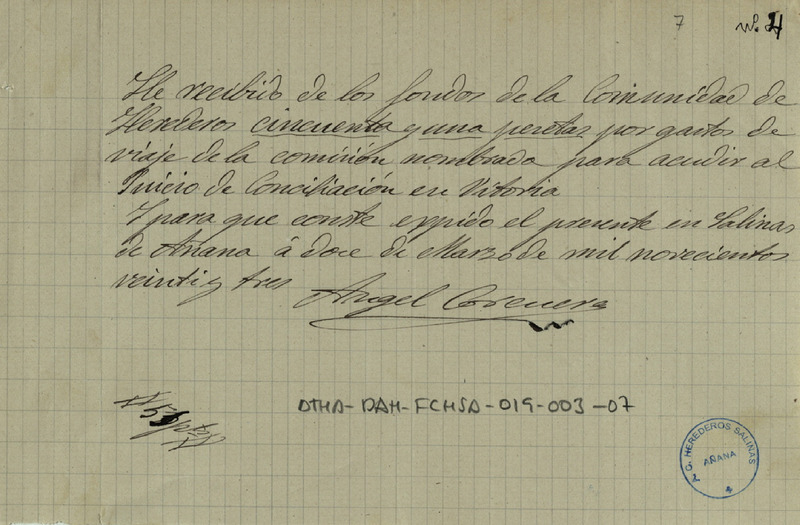 7 Nº. 4
He recibido de los fondos de la Comunidad de
Herederos cincuenta y una pesetas por gastos de
viaje de la comisión nombrada para acudir al
Juicio de Conciliación en Vitoria
Y para que conste expido el presente en Salinas
de Añana á doce de Marzo de mil novecientos
veinti y tres
Angel
51 pts
DTHA-DAH-FCHSA-019-003-07
C. HEREDEROS SALINAS
AÑANA